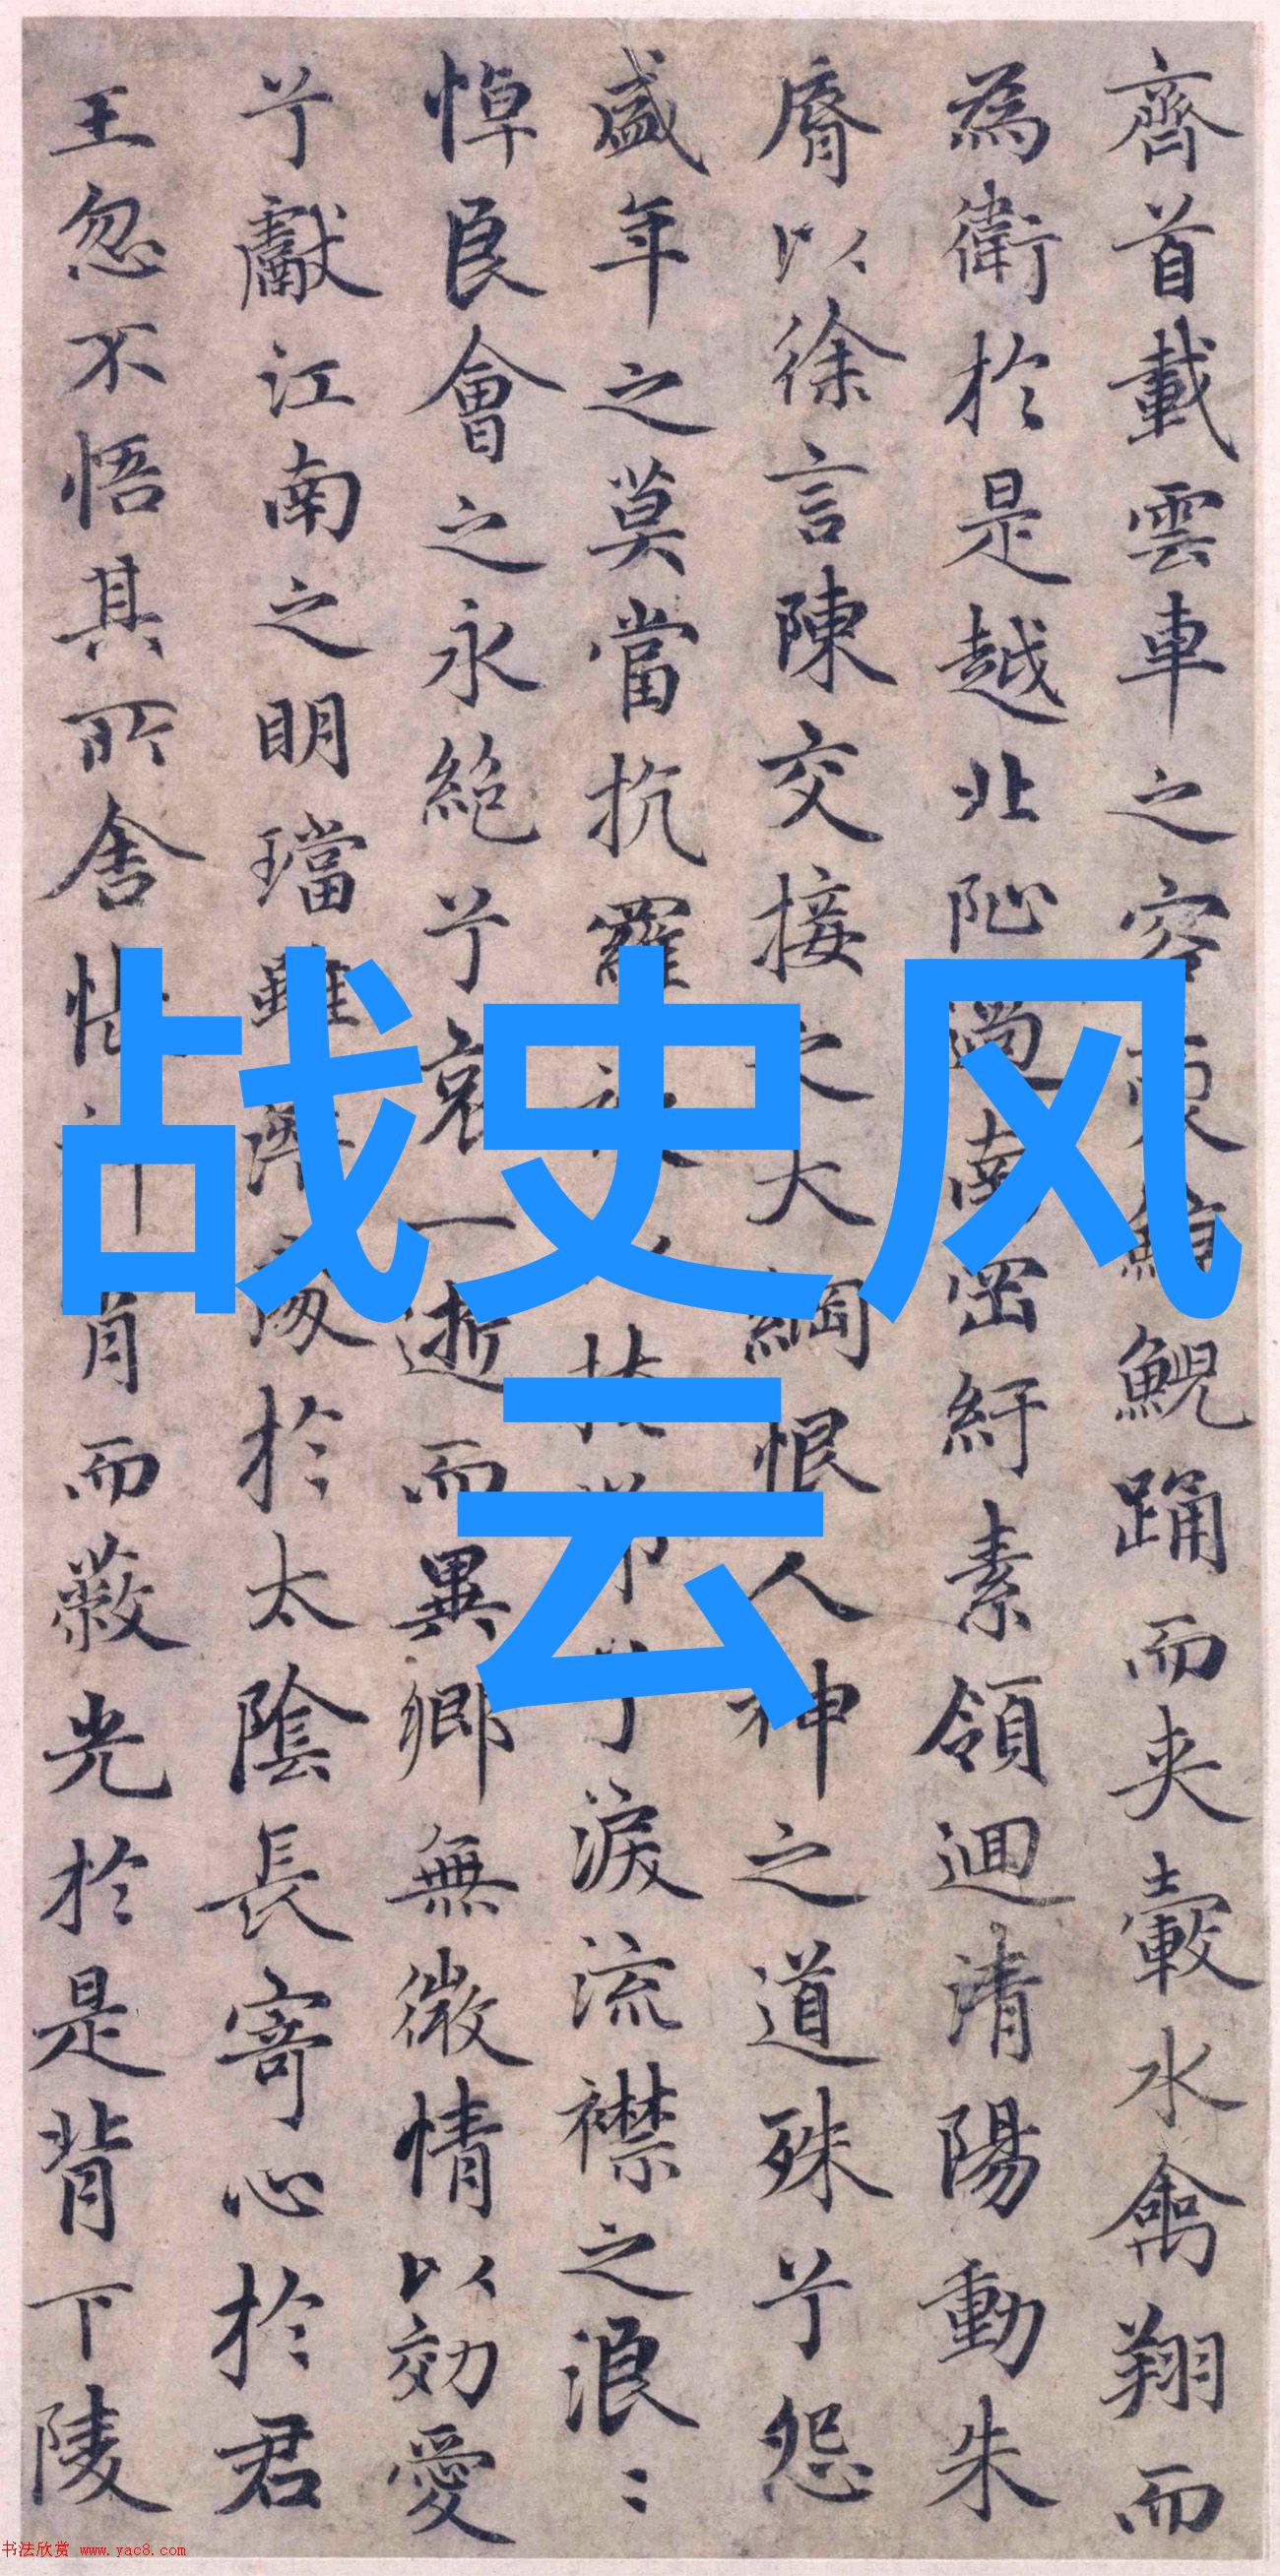 齊首載雲車之容裔鯨鯢踊而夾轂水禽翔而
為衛於是越北沚過南岡紆素領迴清陽動朱
脣以徐言陳交接之大綱恨人神之道殊兮怨
盛年之莫當抗羅袂以掩涕兮淚流襟之浪〻
悼良會之永絕兮哀一逝而異鄉無微情以効愛
兮獻江南之明璫雖潛處於太陰長寄心於君
王忽不悟其所舍悵神宵而蔽光於是背下陵
战史风
云
书法欣赏 www.yac8.com